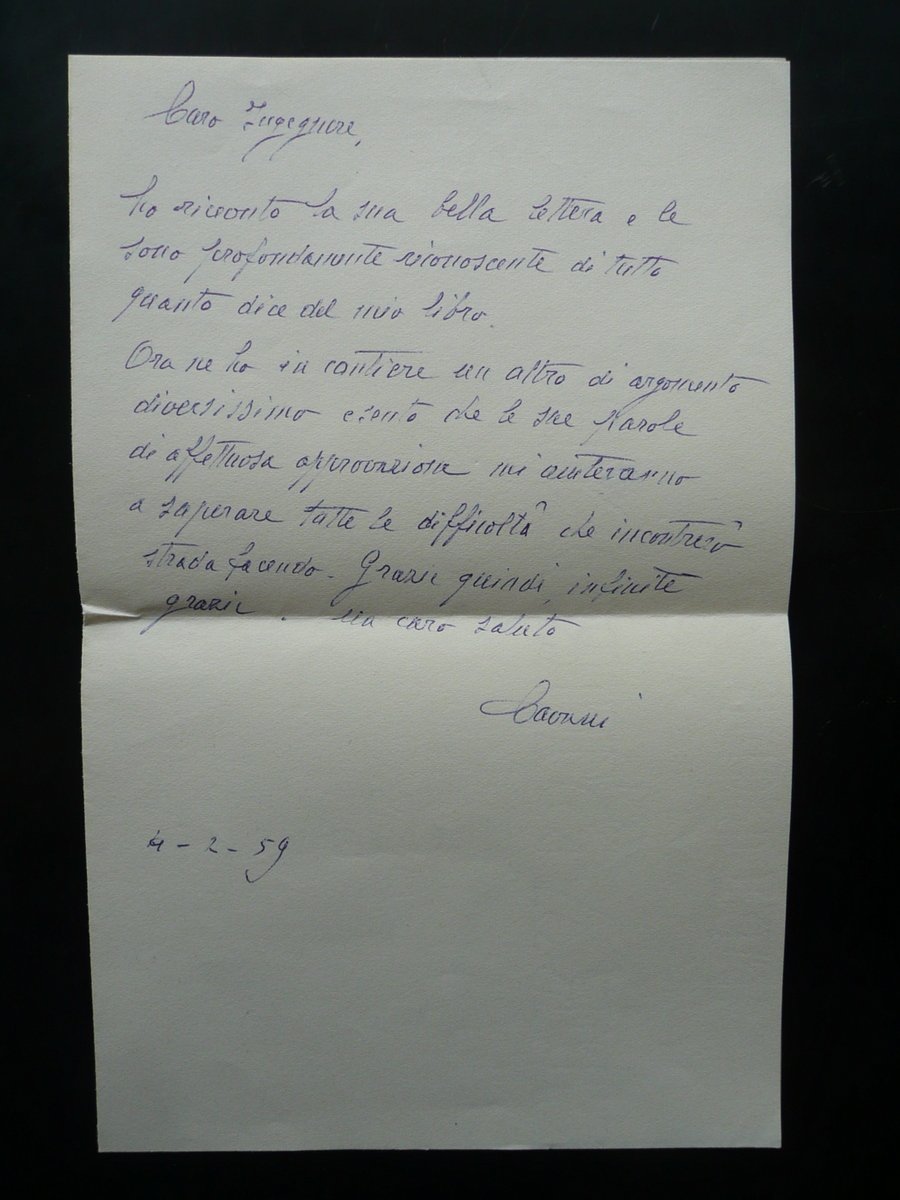 Caro Ingegnere,
ho ricevuto la sua bella lettera e le
sono profondamente riconoscente di tutto
quanto dice del mio libro.
Ora ne ho in cantiere un altro di argomento
diversissimo e sento che le sue parole
di affettuosa approvazione mi aiuteranno
a superare tutte le difficoltà che incontrerò
strada facendo. Grazie quindi, infinite
grazie. un caro saluto
4-2-59